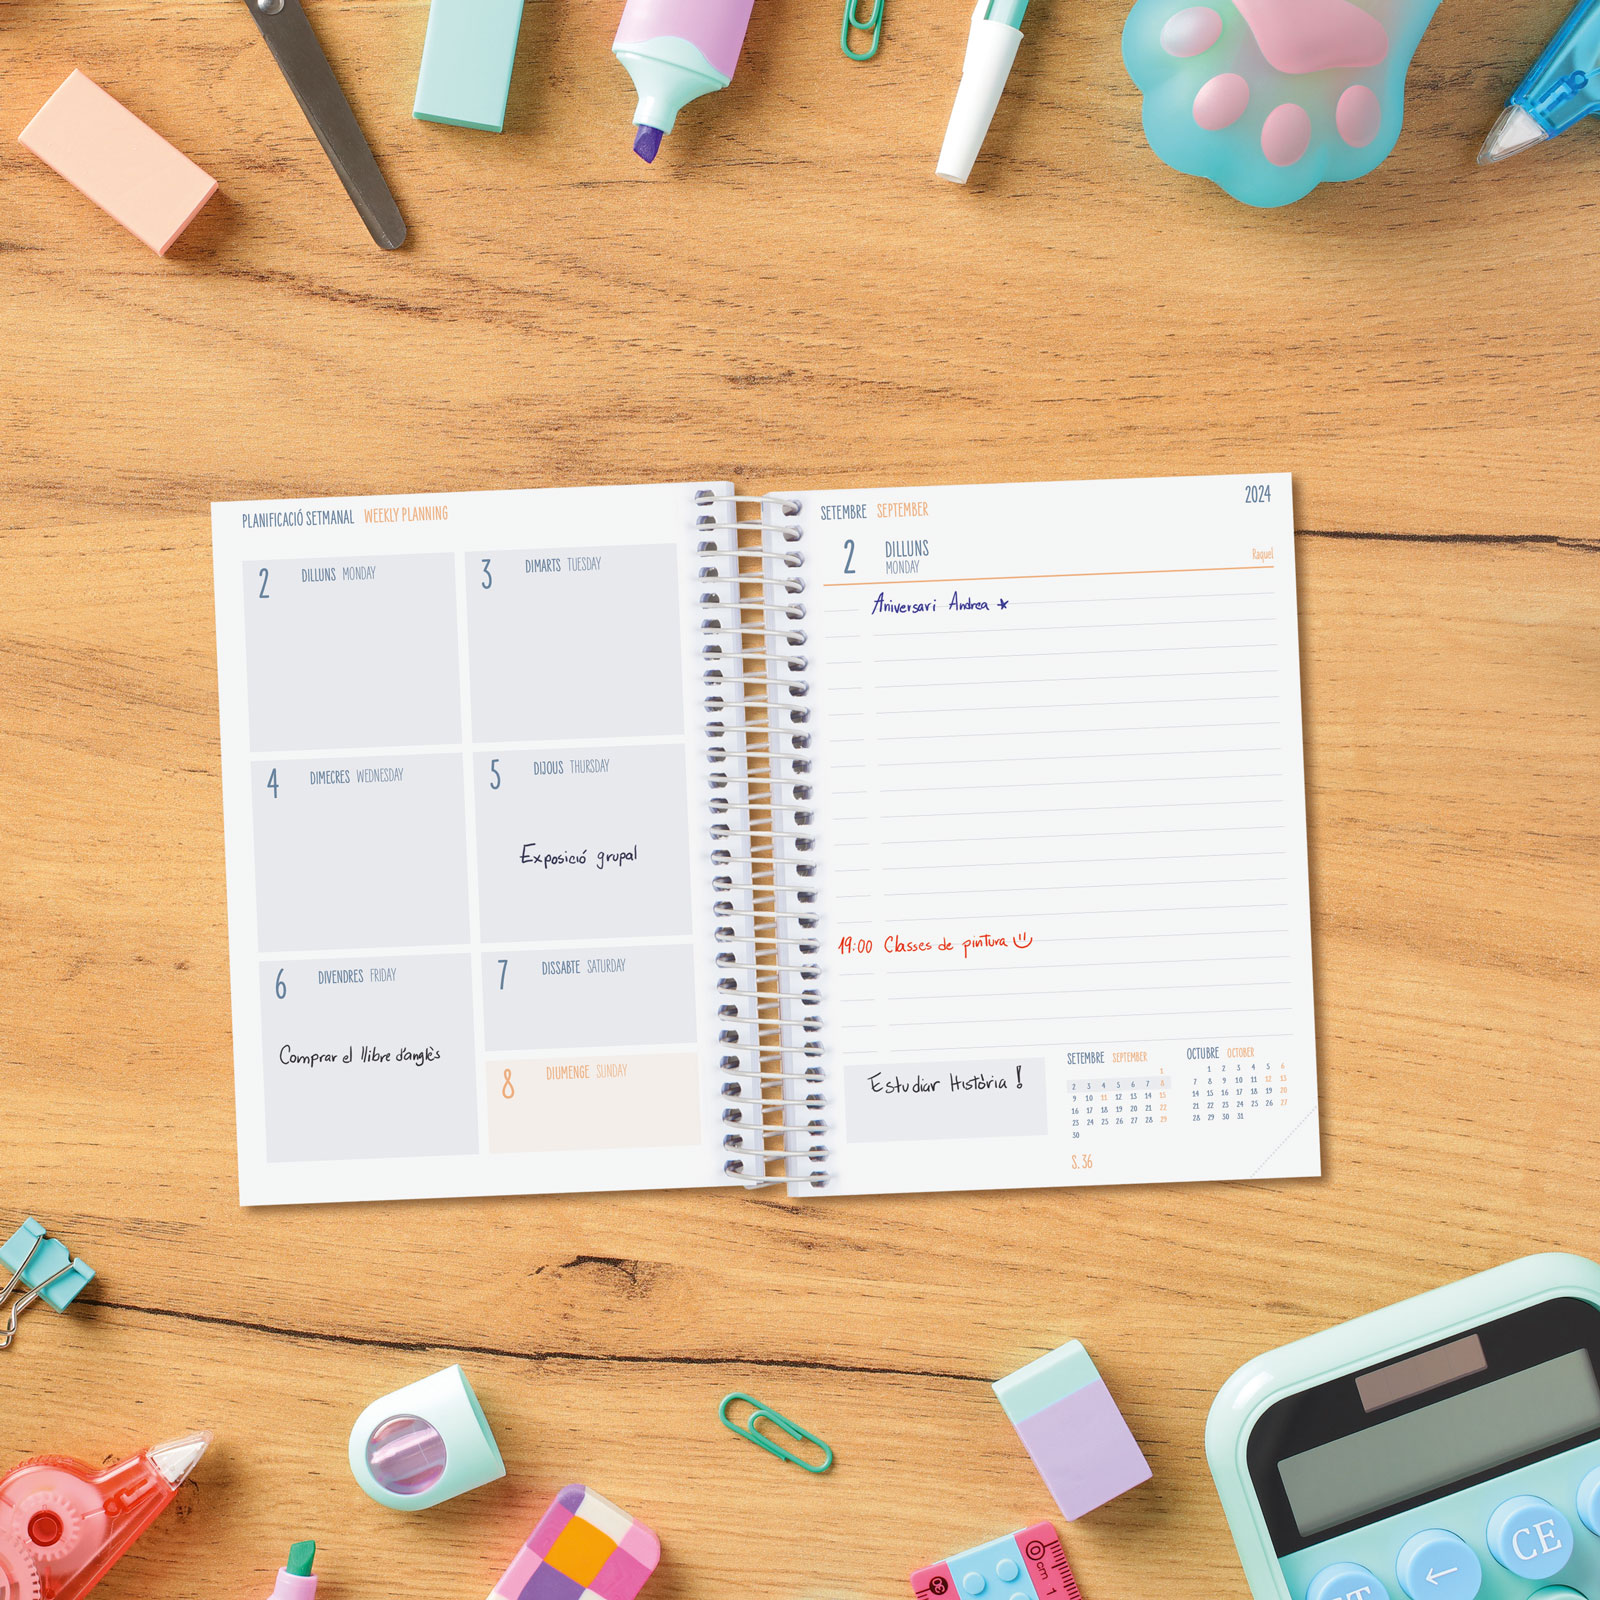 PLANIFICACIÓ SETMANAL WEEKLY PLANNING
2 DILLUNS MONDAY
3 DIMARTS TUESDAY
4 DIMECRES WEDNESDAY
5 DIJOUS THURSDAY
Exposició grupal
6 DIVENDRES FRIDAY
Comprar el llibre d'anglès
7 DISSABTE SATURDAY
8 DIUMENGE SUNDAY
SETEMBRE SEPTEMBER
2024
2 DILLUNS
MONDAY
Raquel
Aniversari Andrea
19:00 Classes de pintura
Estudiar Història !
SETEMBRE SEPTEMBER
1
2 3 4 5 6 7 8
9 10 11 12 13 14 15
16 17 18 19 20 21 22
23 24 25 26 27 28 29
30
S. 36
OCTUBRE OCTOBER
1 2 3 4 5 6
7 8 9 10 11 12 13
14 15 16 17 18 19 20
21 22 23 24 25 26 27
28 29 30 31
0 cm 1
30
CE
←